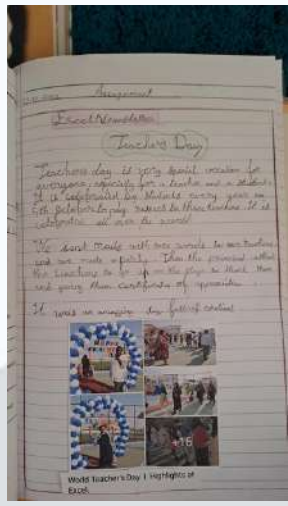 Assignment
Excel Newsletter
Teachers Day
Teachers day is very special occasion for
everyone, especially for a teacher and a student.
It is celebrated by students every year on
5th October to pay respect to their teachers. It is
celebrated all over the world
We sent mails with our words to our teachers
and we made a party. Then the principal called
the teachers to go up on the stage to thank them
and giving them certificate of appreciation.
It was an amazing day full of
+16
World Teacher's Day I Highlights of
Excel